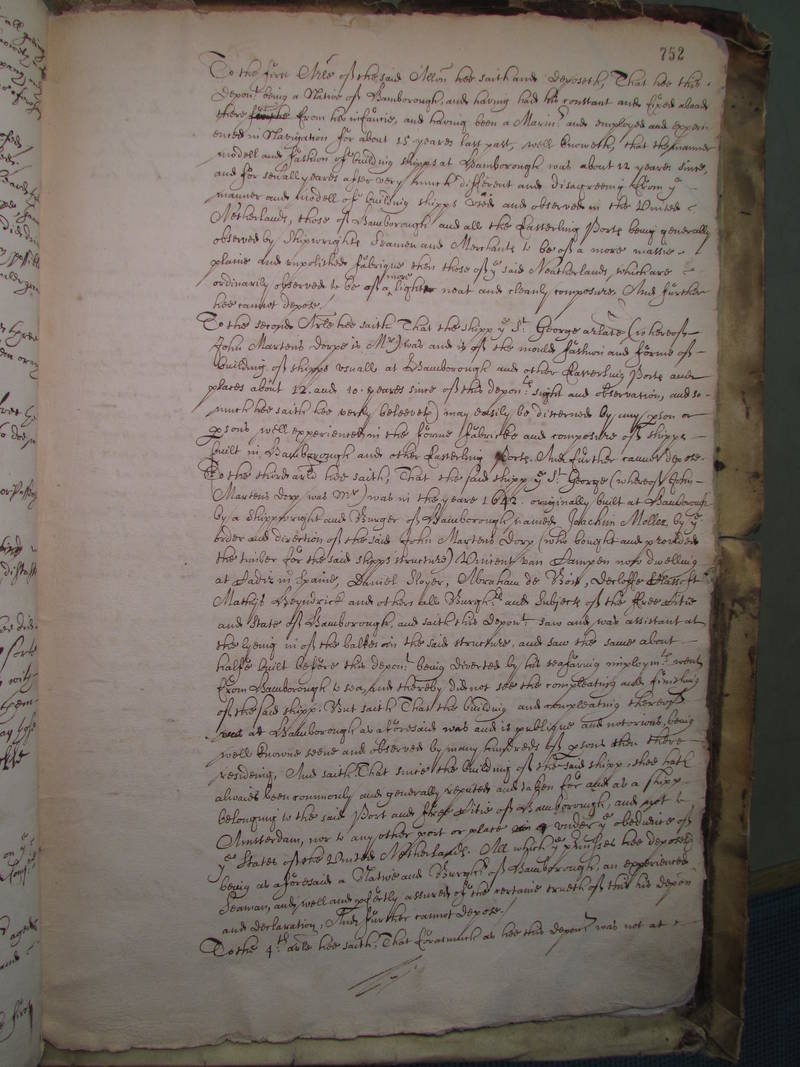 752
To the first Arle of the said Allon hee saith and deposeth, That hee this
deponent being a Native of Hamborough, and having had his constant and fixed aboad
there from his infancie, and having been a Marinr and employed and experi-
enced in Navigation for about 15 yeares last past, well knoweth, that the manner
modell and fashion of building shipps at Hamborough was about 12 yeares since,
and for severall yeares after very much different and disagreeing from ye
manner and modell of building shipps used and observed in the United
Netherlands, those of Hamborough and all the Easterling Ports being generally
observed by Shipwrights Seamen and Merchants to be of a more massie
plaine and unpolished fabrique then those of ye said Neatherlands, which are
ordinarily observed to be of a more light neat and cleanly composure. And further
hee cannot depose./
To the second Arle hee saith That the shipp ye St. George arlate (whereof
John Martens Dorpe is Mr) was and is of the mould fashion and forme of
building of shipps usuall at Hamborough and other Easterling Ports and
places about 12 and 10 yeares since of this deponts sight and observation, and so
much hee saith hee verily beleeveth) may easily be discerned by any pson or
psons well experienced in the forme fabricke and composure of shipps
built in Hamborough and other Easterling Ports. And further cannot depose.
To the third arle hee saith, That the said shipp ye St. George (whereof John
Martens Dorp was Mr) was in the yeare 1642 originally built at Hamborough
by a Shippwright and Burger of Hamborough named Joachim Moller by ye
order and direction of the said John Martens Dorp (who bought and provided
the timber for the said shipps structure) Vincent van Campen now dwelling
at Cadiz in Spaine, Daniel Sloyer, Abraham de Bois,
Mathijs Heyndrick and others all Burghrs and Subjects of the free Citie
and State of Hamborough, and saith this deponr saw and was assistant at
the lyeing in of the balke in the said structure, and saw the same about
halfe built before this deponr being diverted by his seafaring imploymt went
from Hamborough to sea, and thereby did not see the compleating and finishing
of the said shipp. But saith That the building and compleating thereof
at Hamborough as aforesaid was and is publique and notorious, being
well knowne seene and observed by many hundreds of psons then there
resideing, And saith That since the building of the said shipp, shee hath
alwaies been commonly and generally reputed and taken for and as a shipp
belonging to the said Port and free Citie of Hamborough, and not to
Amsterdam, nor to any other port or place under ye obedience of
ye States of the United Netherlands. All which ye premisses hee deposeth
being as aforesaid a Native and Burghr of Hamborough, an experienced
Seaman, and well and pfectly assured of the certaine trueth of this his depon
and declaration, And further cannot depose./
To the 4th arle hee saith, That forasmuch as hee this deponr was not at